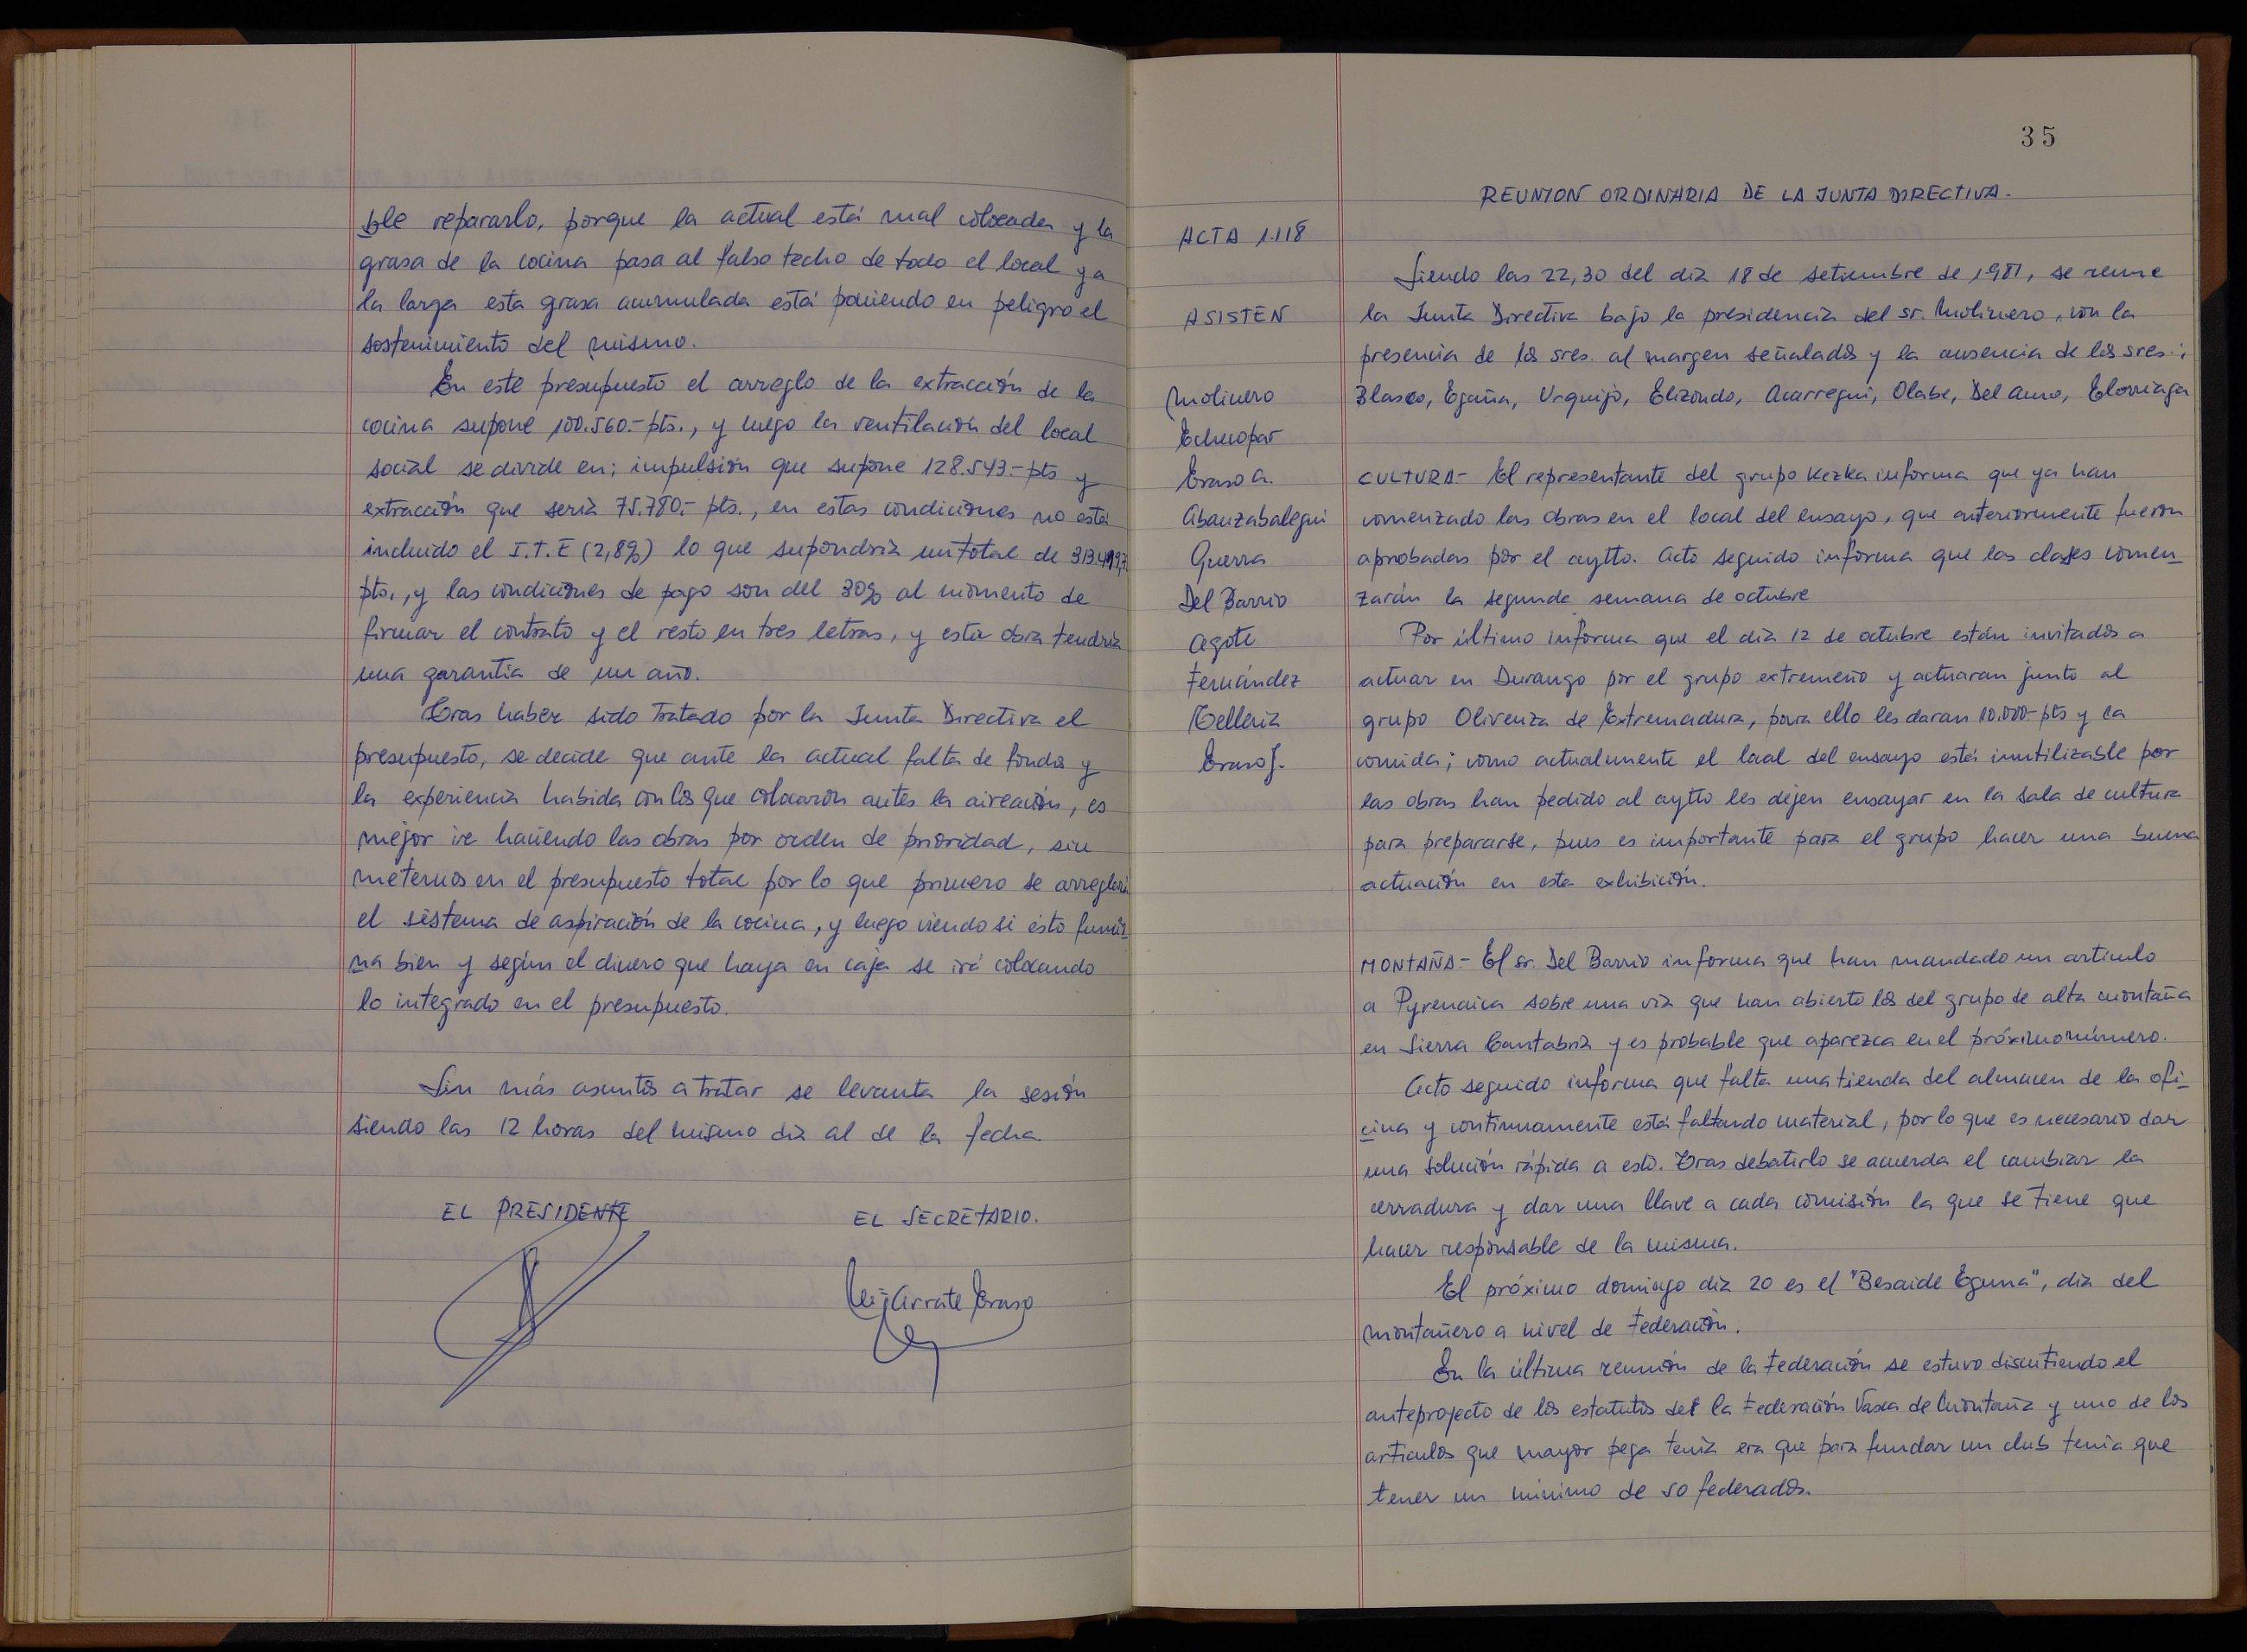 ble repararlo, porque la actual está mal colocada y la
grasa de la cocina pasa al falso techo de todo el local y a
la larga esta grasa acumulada está poniendo en peligro el
sostenimiento del mismo.
En este presupuesto el arreglo de la extracción de la
cocina supone 100.560.- pts., y luego la ventilación del local
social se divide en; impulsión que supone 128.543.- pts y
extracción que seria 75.780.- pts., en estas condiciones no está
incluido el I.T.E (2,8%) lo que supondria un total de
pts., y las condiciones de pago son del 30% al momento de
firmar el contrato y el resto en tres letras, y esta obra tendria
una garantia de un año.
Tras haber sido tratado por la Junta Directiva el
presupuesto, se decide que ante la actual falta de fondos y
la experiencia habida con los que colocaron antes la aireación, es
mejor ir haciendo las obras por orden de prioridad, sin
meternos en el presupuesto total por lo que primero se arreglará
el sistema de aspiración de la cocina, y luego viendo si ésto funcio
na bien y según el dinero que haya en caja se irá colocando
lo integrado en el presupuesto.
Sin más asuntos a tratar se levanta la sesión
siendo las 12 horas del mismo dia al de la fecha.
EL PRESIDENTE EL SECRETARIO.
Arrate Eraso
35
REUNION ORDINARIA DE LA JUNTA DIRECTIVA.
ACTA 1.118
ASISTEN
Molinero
Echecopar
Eraso A.
Abanzabalegui
Guerra
Del Barrio
Agote
Fernández
Telleria
Eraso J.
Siendo las 22,30 del dia 18 de setiembre de 1981, se reune
la Junta Directiva bajo la presidencia del sr. Molinero, con la
presencia de los sres. al margen señalados y la ausencia de los sres.:
Blasco, Egaña, Urquijo, Elizondo, Acarregui, Olabe, Del Amo, Elorriaga
CULTURA.- El representante del grupo Kezka informa que ya han
comenzado las obras en el local del ensayo, que anteriormente fueron
aprobadas por el aytto. Acto seguido informa que las clases comen_
zarán la segunda semana de octubre
Por último informa que el dia 12 de octubre están invitados a
actuar en Durango por el grupo extremeño y actuaran junto al
grupo Olivenza de Extremadura, para ello les daran 10.000- pts y la
comida; como actualmente el local del ensayo está inutilizable por
las obras han pedido al aytto les dejen ensayar en la sala de cultura
para prepararse, pues es importante para el grupo hacer una buena
actuación en esta exhibición.
MONTAÑA.- El sr. Del Barrio informa que han mandado un articulo
a Pyrenaica sobre una via que han abierto los del grupo de alta montaña
en Sierra Cantabria y es probable que aparezca en el próximo número.
Acto seguido informa que falta una tienda del almacen de la ofi_
cina y continuamente está faltando material, por lo que es necesario dar
una solución rápida a esto. Tras debatirlo se acuerda el cambiar la
cerradura y dar una llave a cada comisión la que se tiene que
hacer responsable de la misma.
El próximo domingo dia 20 es el "Besaide Eguna", dia del
montañero a nivel de Federación.
En la última reunión de la Federación se estuvo discutiendo el
anteproyecto de los estatutos del la Federación Vasca de Montaña y uno de los
articulos que mayor pega tenia era que para fundar un club tenia que
tener un minimo de 50 federados.